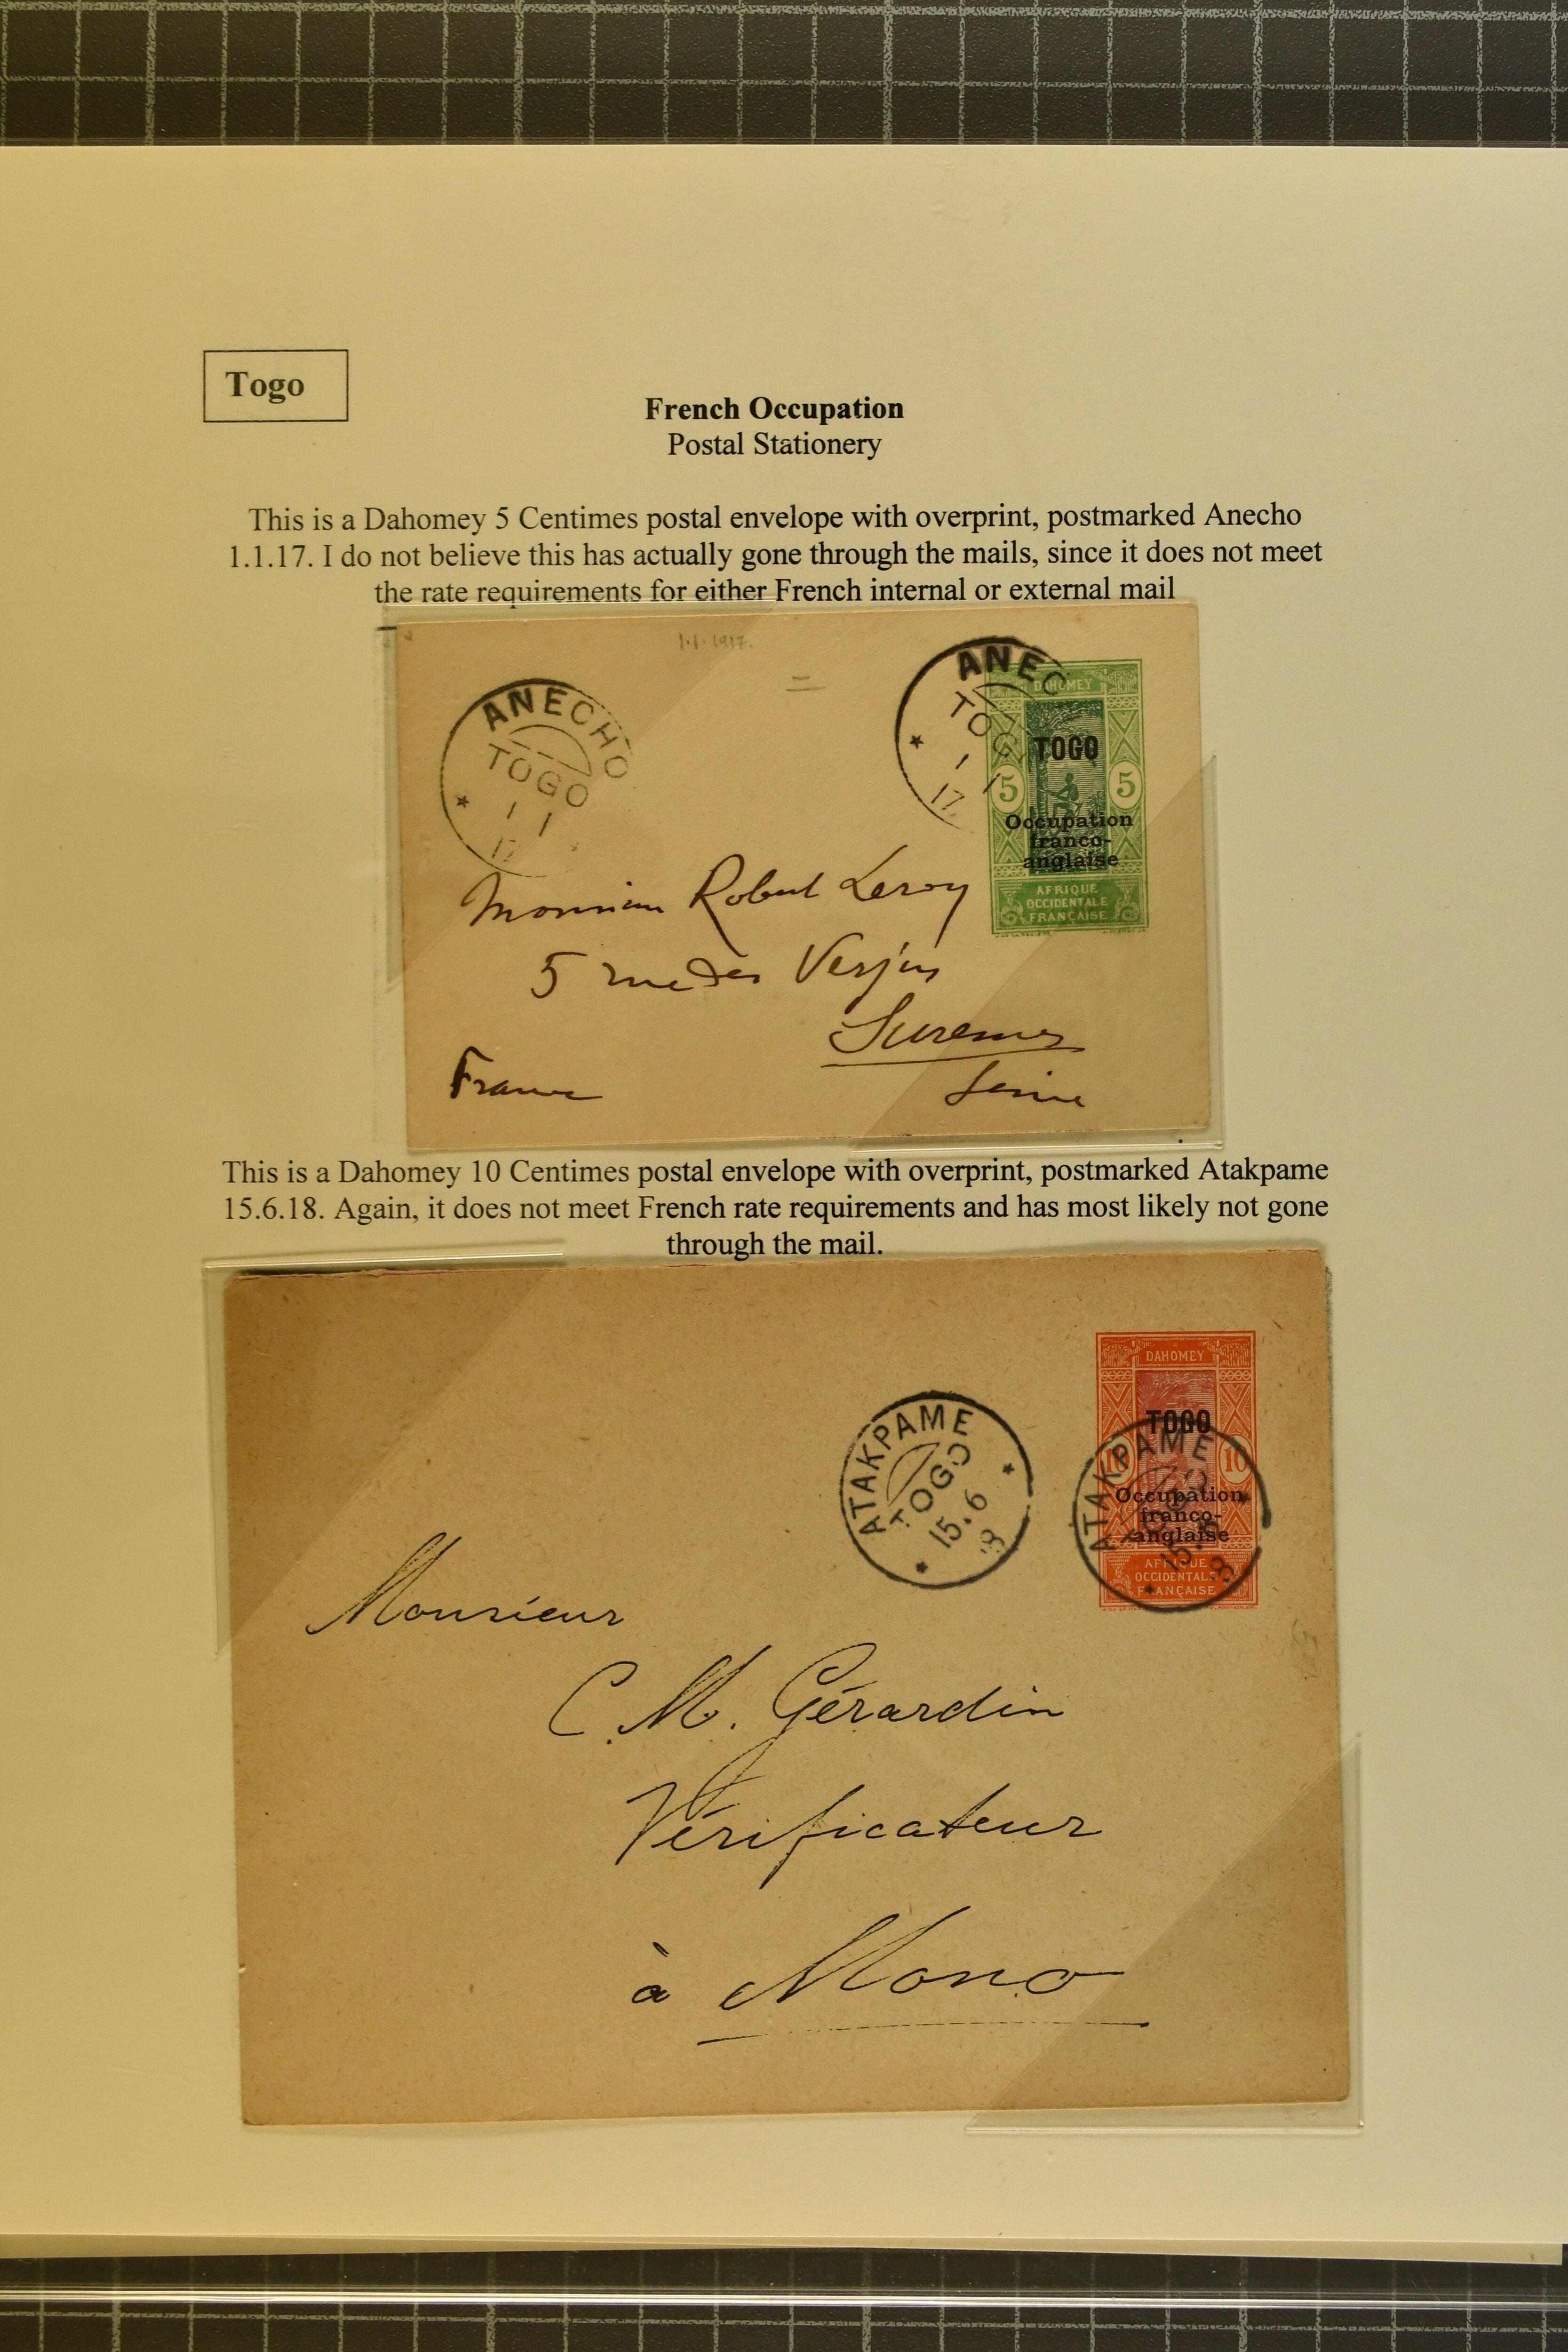 Togo
French Occupation
Postal Stationery
This is a Dahomey 5 Centimes postal envelope with overprint, postmarked Anecho
1.1.17. I do not believe this has actually gone through the mails, since it does not meet
the rate requirements for either French internal or external mail
1.1.1917.
ANECHO
TOGO
1 1
17
ANEC
TOG
1 1
17
DAHOMEY
TOGO
5 5
Occupation
franco-
anglaise
AFRIQUE
OCCIDENTALE
FRANÇAISE
Monsieur Robert Leroy
5 rue des Verjus
Suresnes
Seine
France
This is a Dahomey 10 Centimes postal envelope with overprint, postmarked Atakpame
15.6.18. Again, it does not meet French rate requirements and has most likely not gone
through the mail.
ATAKPAME
TOGO
15.6
8
DAHOMEY
TOGO
10 10
Occupation
franco-
anglaise
AFRIQUE
OCCIDENTALE
FRANÇAISE
ATAKPAME
TOGO
15.6
8
Monsieur
C. M. Gérardin
Vérificateur
à Mono